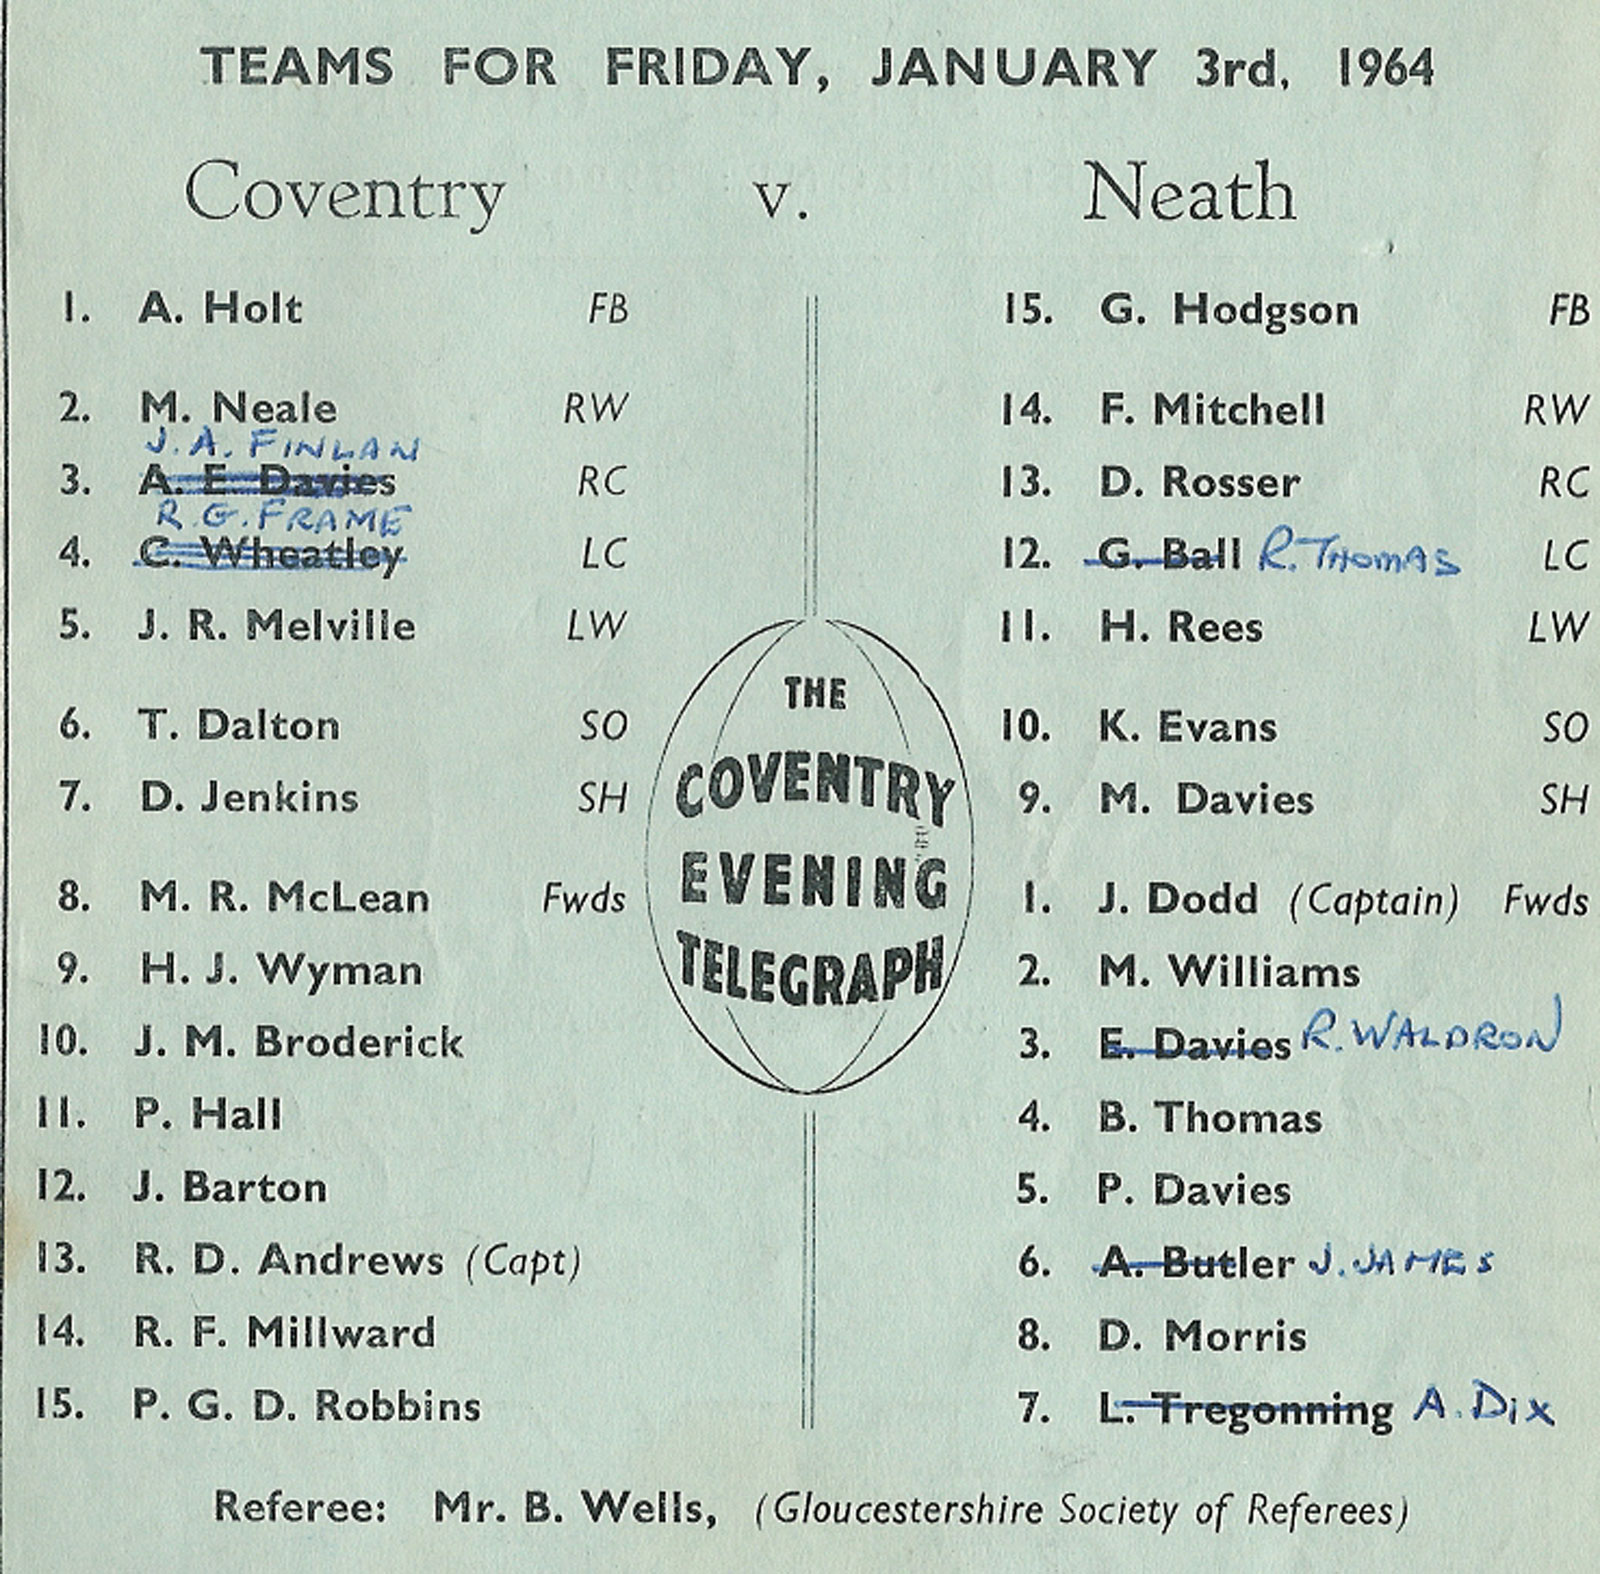 TEAMS FOR FRIDAY, JANUARY 3rd, 1964
Coventry v. Neath
1. A. Holt FB
2. M. Neale RW
J. A. FINLAN
3. A. E. Davies RC
R. G. FRAME
4. C. Wheatley LC
5. J. R. Melville LW
6. T. Dalton SO
7. D. Jenkins SH
8. M. R. McLean Fwds
9. H. J. Wyman
10. J. M. Broderick
11. P. Hall
12. J. Barton
13. R. D. Andrews (Capt)
14. R. F. Millward
15. P. G. D. Robbins
THE
COVENTRY
EVENING
TELEGRAPH
15. G. Hodgson FB
14. F. Mitchell RW
13. D. Rosser RC
12. G. Ball R. THOMAS LC
11. H. Rees LW
10. K. Evans SO
9. M. Davies SH
1. J. Dodd (Captain) Fwds
2. M. Williams
3. E. Davies R. WALDRON
4. B. Thomas
5. P. Davies
6. A. Butler J. JAMES
8. D. Morris
7. L. Tregonning A. Dix
Referee: Mr. B. Wells, (Gloucestershire Society of Referees)